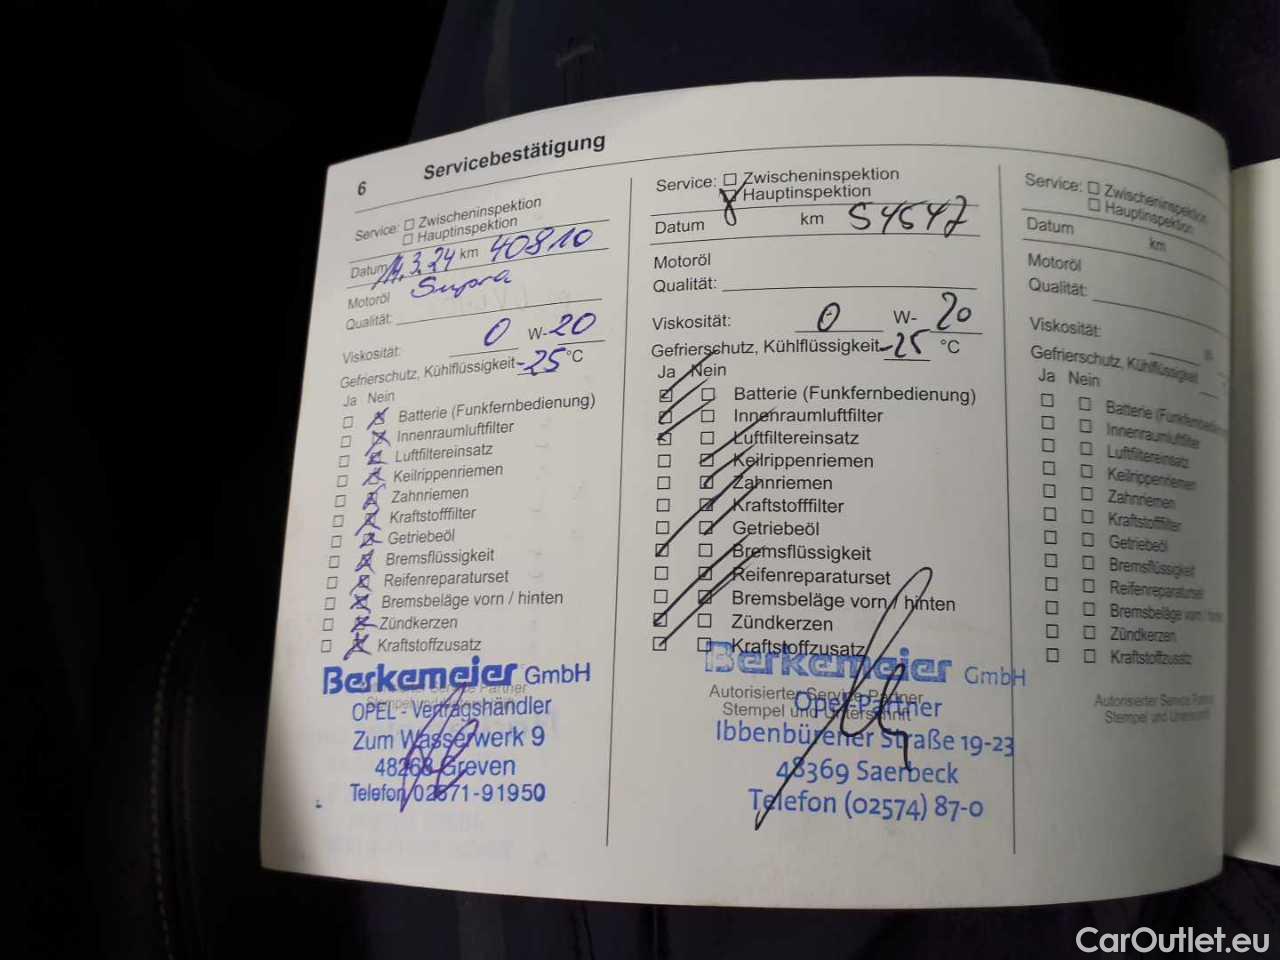 6 Servicebestätigung
Service: Zwischeninspektion
Hauptinspektion
Datum 14.3.24 km 40810
Motoröl Supra
Qualität:
Viskosität: 0 W- 20
Gefrierschutz, Kühlflüssigkeit -25 °C
Ja Nein
Batterie (Funkfernbedienung)
Innenraumluftfilter
Luftfiltereinsatz
Keilrippenriemen
Zahnriemen
Kraftstofffilter
Getriebeöl
Bremsflüssigkeit
Reifenreparaturset
Bremsbeläge vorn / hinten
Zündkerzen
Kraftstoffzusatz
Berkemeier GmbH
OPEL - Vertragshändler
Zum Wasserwerk 9
48268 Greven
Telefon 02571-91950
Service: Zwischeninspektion
Hauptinspektion
Datum km 54547
Motoröl
Qualität:
Viskosität: 0 W- 20
Gefrierschutz, Kühlflüssigkeit -25 °C
Ja Nein
Batterie (Funkfernbedienung)
Innenraumluftfilter
Luftfiltereinsatz
Keilrippenriemen
Zahnriemen
Kraftstofffilter
Getriebeöl
Bremsflüssigkeit
Reifenreparaturset
Bremsbeläge vorn / hinten
Zündkerzen
Kraftstoffzusatz
Berkemeier GmbH
Autorisierter Service Partner
Stempel und Unterschrift
Opel-Partner
Ibbenbürener Straße 19-23
48369 Saerbeck
Telefon (02574) 87-0
Service: Zwischeninspektion
Hauptinspektion
Datum km
Motoröl
Qualität:
Viskosität:
Gefrierschutz, Kühlflüssigkeit
Ja Nein
Batterie (Funkfernbedienung
Innenraumluftfilter
Luftfiltereinsatz
Keilrippenriemen
Zahnriemen
Kraftstofffilter
Getriebeöl
Bremsflüssigkeit
Reifenreparaturset
Bremsbeläge vorn /
Zündkerzen
Kraftstoffzusatz
Autorisierter Service
Stempel und Unterschrift
CarOutlet.eu